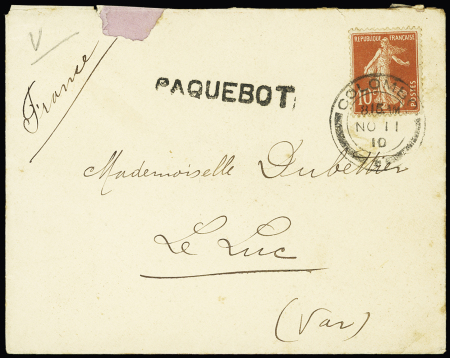 France
PAQUEBOT
REPUBLIQUE FRANÇAISE
10
POSTES
COLOMB
NO 11
10
Mademoiselle Dubelher
Le Luc
(Var)